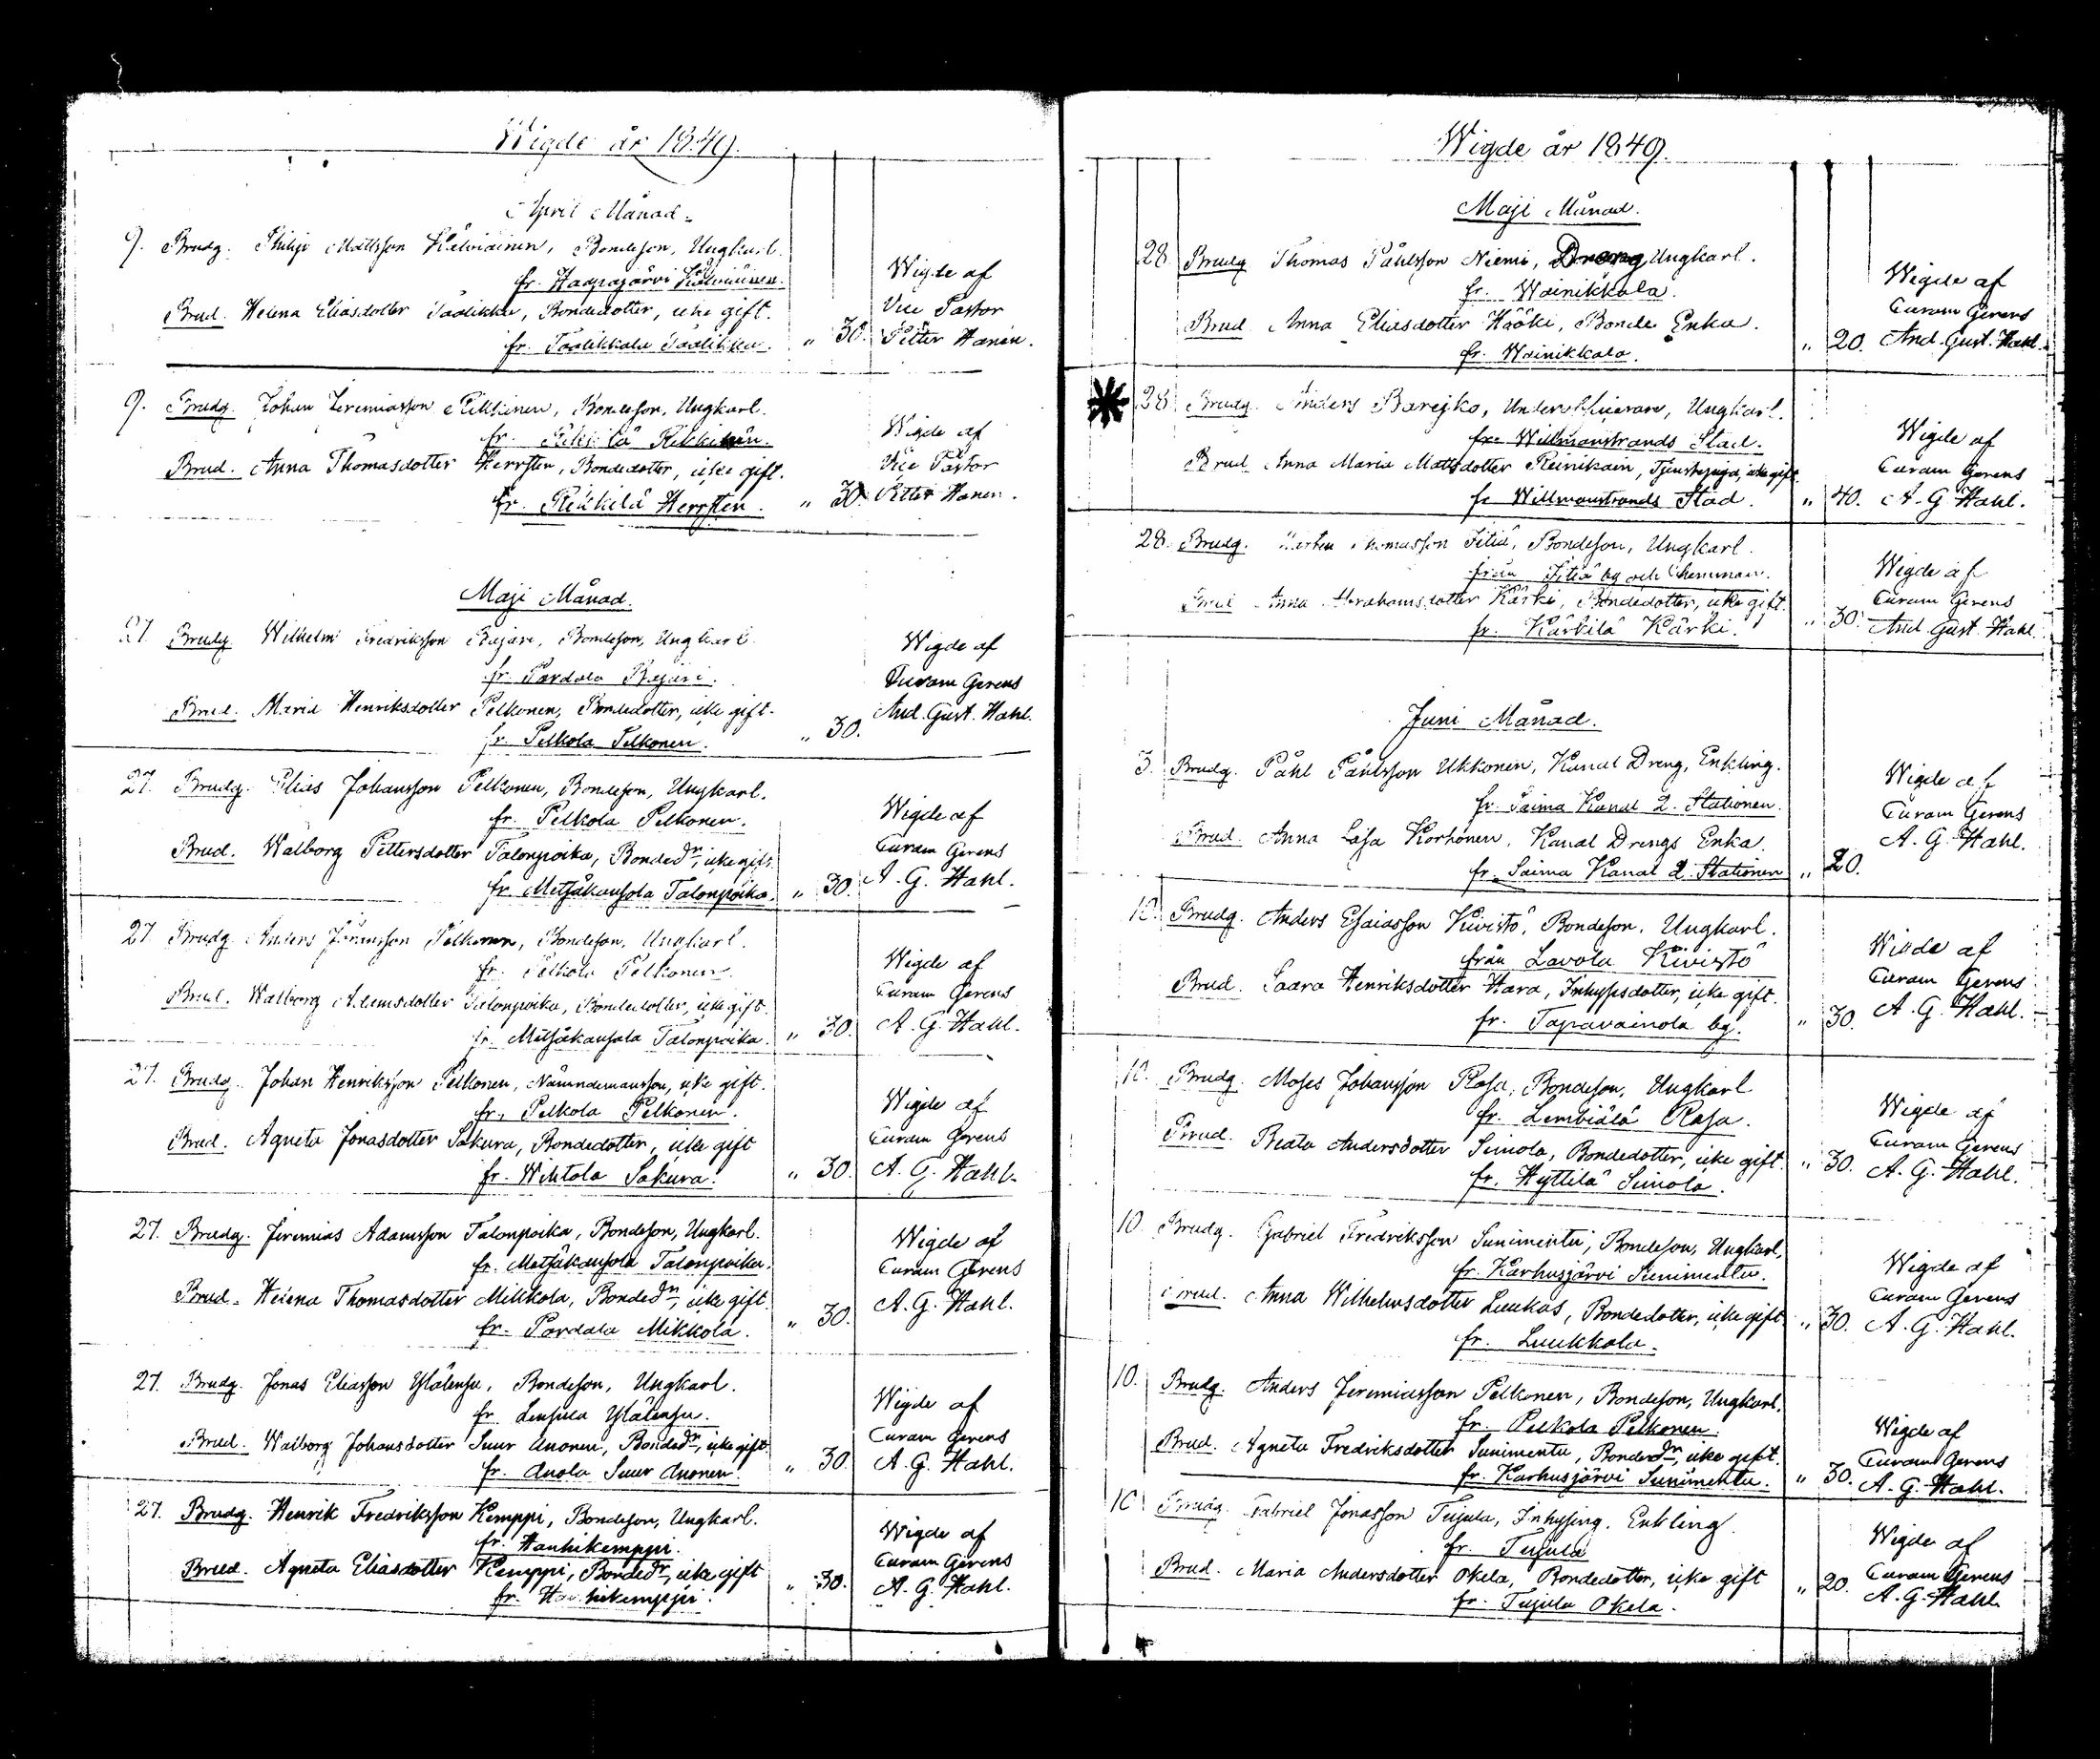 Wigde år 1849.
April Månad.
9. Brudg. Philip Mattsson Kälviäinen, Bondeson, Ungkarl.
fr. Haapajärvi Kälviäinen.
Brud. Helena Eliasdotter Taalikka, Bondedotter, icke gift.
fr. Taalikkala Taalikka. " 30.
Wigde af
Vice Pastor
Petter Hanén.
9. Brudg. Johan Jeremiasson Rikkinen, Bondeson, Ungkarl.
fr. Rikkilä
Brud. Anna Thomasdotter Herrsten, Bondedotter, icke gift.
fr. Rikkilä Herrsten. " 30.
Wigde af
Vice Pastor
Petter Hanén.
Maji Månad.
27. Brudg. Wilhelm Fredriksson Bajari, Bondeson, Ungkarl.
fr. Pardala Bajari.
Brud. Maria Henriksdotter Pelkonen, Bondedotter, icke gift.
fr. Pelkola Pelkonen. " 30.
Wigde af
Curam Gerens
And. Gust. Hahl.
27. Brudg. Elias Johansson Pelkonen, Bondeson, Ungkarl.
fr. Pelkola Pelkonen.
Brud. Walborg Pettersdotter Talonpoika, Bondedr, icke gift.
fr. Metsäkansola Talonpoika. " 30.
Wigde af
Curam Gerens
A. G. Hahl.
27. Brudg. Anders Pelkonen, Bondeson, Ungkarl.
fr. Pelkola Pelkonen.
Brud. Walborg Adamsdotter Talonpoika, Bondedotter, icke gift.
fr. Metsäkansala Talonpoika. " 30.
Wigde af
Curam Gerens
A. G. Hahl.
27. Brudg. Johan Henriksson Pelkonen, Nämndemansson, icke gift.
fr. Pelkola Pelkonen.
Brud. Agneta Jonasdotter Sakura, Bondedotter, icke gift
fr. Wihtola Sakura. " 30.
Wigde af
Curam Gerens
A. G. Hahl.
27. Brudg. Jeremias Adamsson Talonpoika, Bondeson, Ungkarl.
fr. Metsäkansola Talonpoika.
Brud. Helena Thomasdotter Mikkola, Bondedr, icke gift.
fr. Pardala Mikkola. " 30.
Wigde af
Curam Gerens
A. G. Hahl.
27. Brudg. Jonas Eliasson Ylälensu, Bondeson, Ungkarl.
fr. Lensula Ylälensu.
Brud. Walborg Johansdotter Suur Anonen, Bondedr, icke gift.
fr. Anola Suur Anonen. " 30.
Wigde af
Curam Gerens
A. G. Hahl.
27. Brudg. Henrik Fredriksson Kemppi, Bondeson, Ungkarl.
fr. Hanhikemppi.
Brud. Agneta Eliasdotter Kemppi, Bondedr, icke gift
fr. Hanhikemppi. " 30.
Wigde af
Curam Gerens
A. G. Hahl.
Wigde år 1849.
Maji Månad.
28 Brudg Thomas Påhlsson Niemi, Dreng Ungkarl.
fr. Wainikkala.
Brud Anna Eliasdotter Hääki, Bonde Enka.
fr. Wainikkala. " 20.
Wigde af
Curam Gerens
And. Gust. Hahl.
28 Brudg. Anders Barejko, Under Ungkarl.
fr. Willmanstrands Stad.
Brud Anna Maria Mattsdotter Reinikain, Tjenstepiga, icke gift
fr Willmanstrands Stad. " 40.
Wigde af
Curam Gerens
A. G Hahl.
28. Brudg. Morten Thomasson Sitiä, Bondeson, Ungkarl.
från Sitiä by och hemman.
Brud Anna Abrahamsdotter Kärki, Bondedotter, icke gift.
fr. Kärkilä Kärki. " 30.
Wigde af
Curam Gerens
And Gust. Hahl.
Juni Månad.
3. Brudg. Påhl Påhlsson Ukkonen, Kanal Dreng, Enkling.
fr. Saima Kanal 2. Stationen.
Brud. Anna Lisa Korhonen, Kanal Drengs Enka.
fr. Saima Kanal 2. Stationen " 20.
Wigde af
Curam Gerens
A. G. Hahl.
10. Brudg. Anders Esaiasson Kivistö, Bondeson, Ungkarl.
från Lavola Kivistö
Brud. Saara Henriksdotter Hara, Inhysesdotter, icke gift.
fr. Tapavainola by. " 30.
Wigde af
Curam Gerens
A. G. Hahl.
10. Brudg. Moses Johansson Rasa, Bondeson, Ungkarl
fr. Lembiälä Rasa.
Brud. Beata Andersdotter Simola, Bondedotter, icke gift.
fr. Hyttilä Simola. " 30.
Wigde af
Curam Gerens
A. G. Hahl.
10. Brudg. Gabriel Fredriksson Sunimentu, Bondeson, Ungkarl.
fr. Karhusjärvi Sunimentu.
Brud. Anna Wilhelmsdotter Luukas, Bondedotter, icke gift
fr. Luukkola. " 30.
Wigde af
Curam Gerens
A. G. Hahl.
10. Brudg. Anders Jeremiasson Pelkonen, Bondeson, Ungkarl.
fr. Pelkola Pelkonen.
Brud. Agneta Fredriksdotter Sunimentu, Bondedr, icke gift.
fr. Karhusjärvi Sunimentu. " 30.
Wigde af
Curam Gerens
A. G. Hahl.
10 Brudg. Gabriel Jonasson Tujula, Inhysing. Enkling.
fr. Tujula
Brud. Maria Andersdotter Okela, Bondedotter, icke gift
fr. Tujula Okela. " 20.
Wigde af
Curam Gerens
A. G. Hahl.